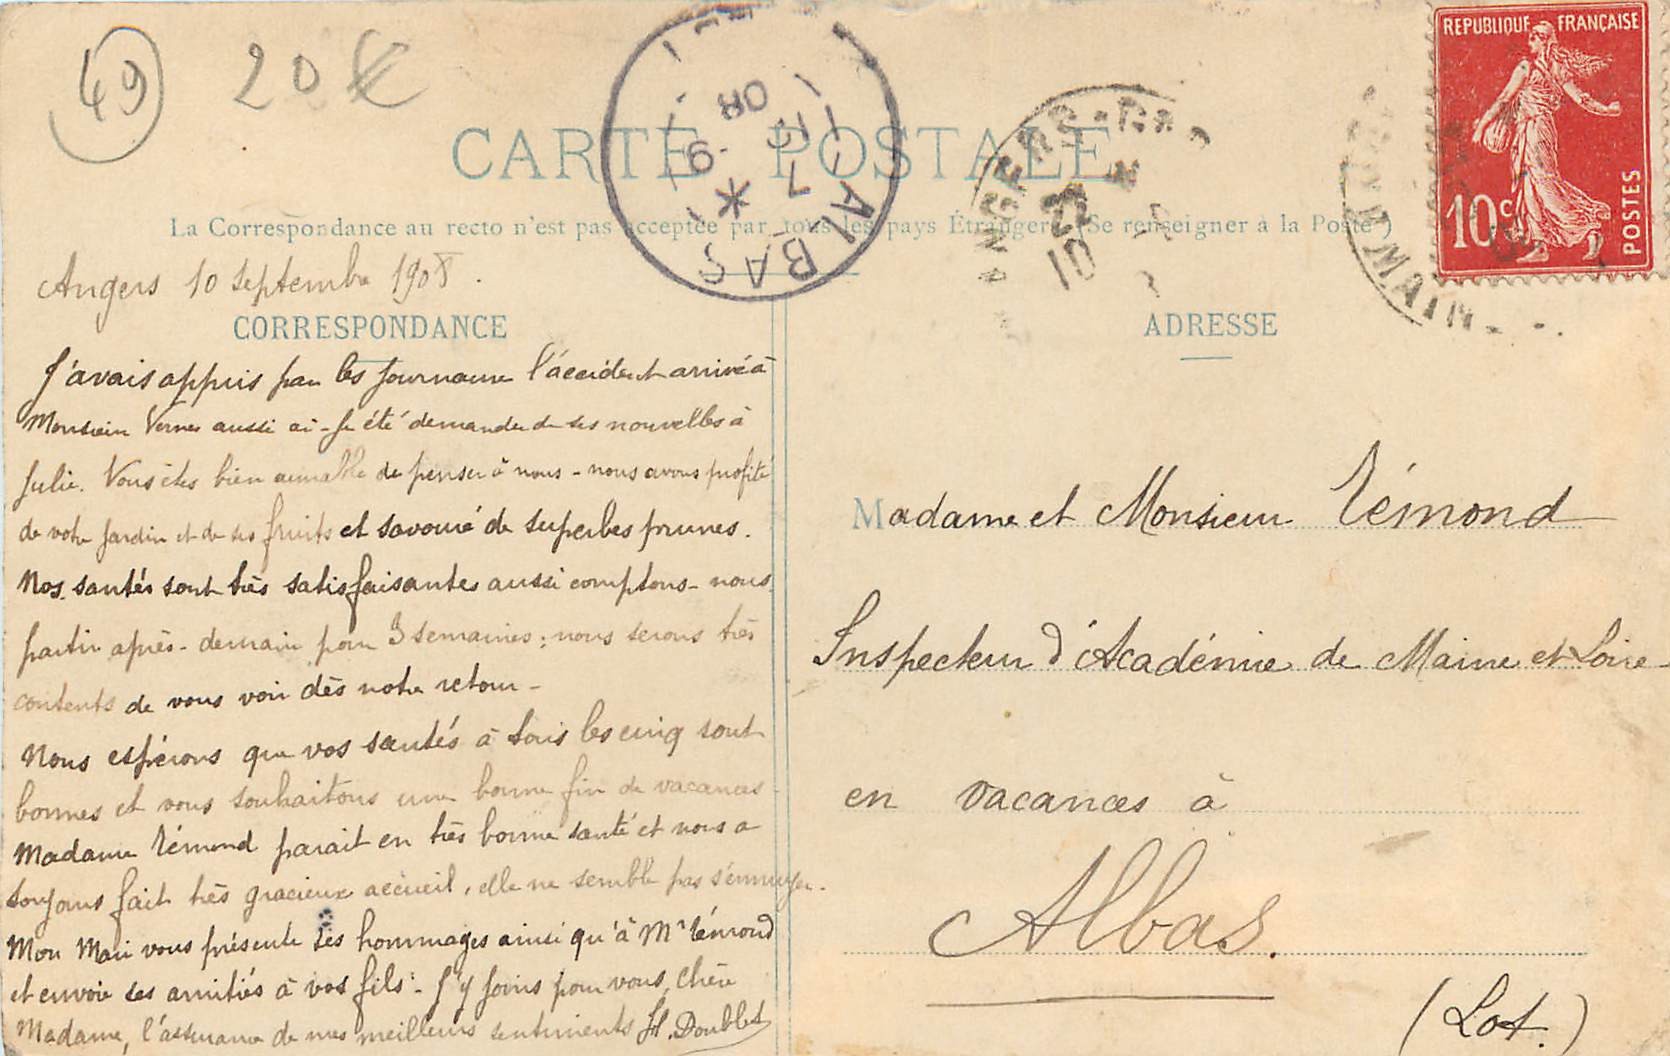 49 20€
CARTE POSTALE
La Correspondance au recto n'est pas acceptée par tous les pays Étrangers (Se renseigner à la Poste)
REPUBLIQUE FRANÇAISE
10c
POSTES
ALBAS
7
9
08
ANGERS
22
10
Angers 10 septembre 1908.
CORRESPONDANCE
J'avais appris par les journaux l'accident arrivé à
Monsieur Vernes aussi ai-je été demander de ses nouvelles à
Julie. Vous êtes bien aimable de penser à nous - nous avons profité
de votre jardin et de ses fruits et savouré de superbes prunes.
Nos santés sont très satisfaisantes aussi comptons-nous
partir après-demain pour 3 semaines; nous serons très
contents de vous voir dès notre retour -
Nous espérons que vos santés à tous les cinq sont
bonnes et vous souhaitons une bonne fin de vacances -
Madame Rémond parait en très bonne santé et nous a
toujours fait très gracieux accueil, elle ne semble pas s'ennuyer.
Mon Mari vous présente ses hommages ainsi qu'à Mr Rémond
et envoie ses amitiés à vos fils - J'y joins pour vous, Chère
Madame, l'assurance de mes meilleurs sentiments H. Doublet
ADRESSE
Madame et Monsieur Rémond
Inspecteur d'Académie de Maine et Loire
en vacances à
Albas.
(Lot.)